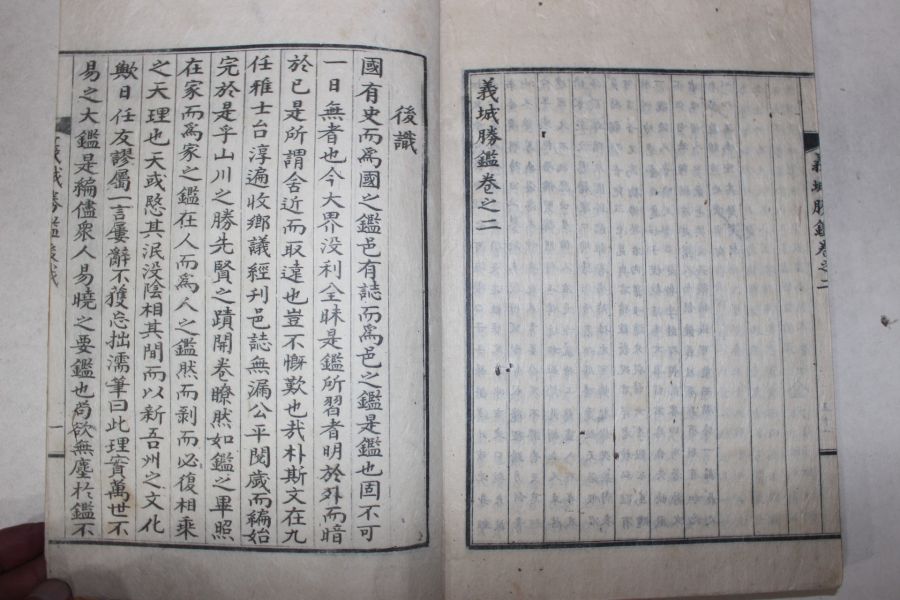 義城勝鑑卷之二
義城勝鑑卷之二
後識
國有史而爲國之鑑邑有誌而爲邑之鑑是鑑也固不可
一日無者也今大界没利全昧是鑑所習者明於外而暗
於已是所謂舍近而取遠也豈不慨歎也哉朴斯文在九
任雅士台淳遍收鄉議經刊邑誌無漏公平閱歲而編始
完於是乎山川之勝先賢之蹟開卷瞭然如鑑之畢照
在家而爲家之鑑在人而爲人之鑑然而剥而必復相乘
之天理也天或愍其泯没陰相其間而以新吾州之文化
歟日任友謬屬一言屢辭不獲忘拙濡筆曰此理實萬世不
易之大鑑是編儘衆人易曉之要鑑也苟欲無塵於鑑不
義城勝鑑後識
一